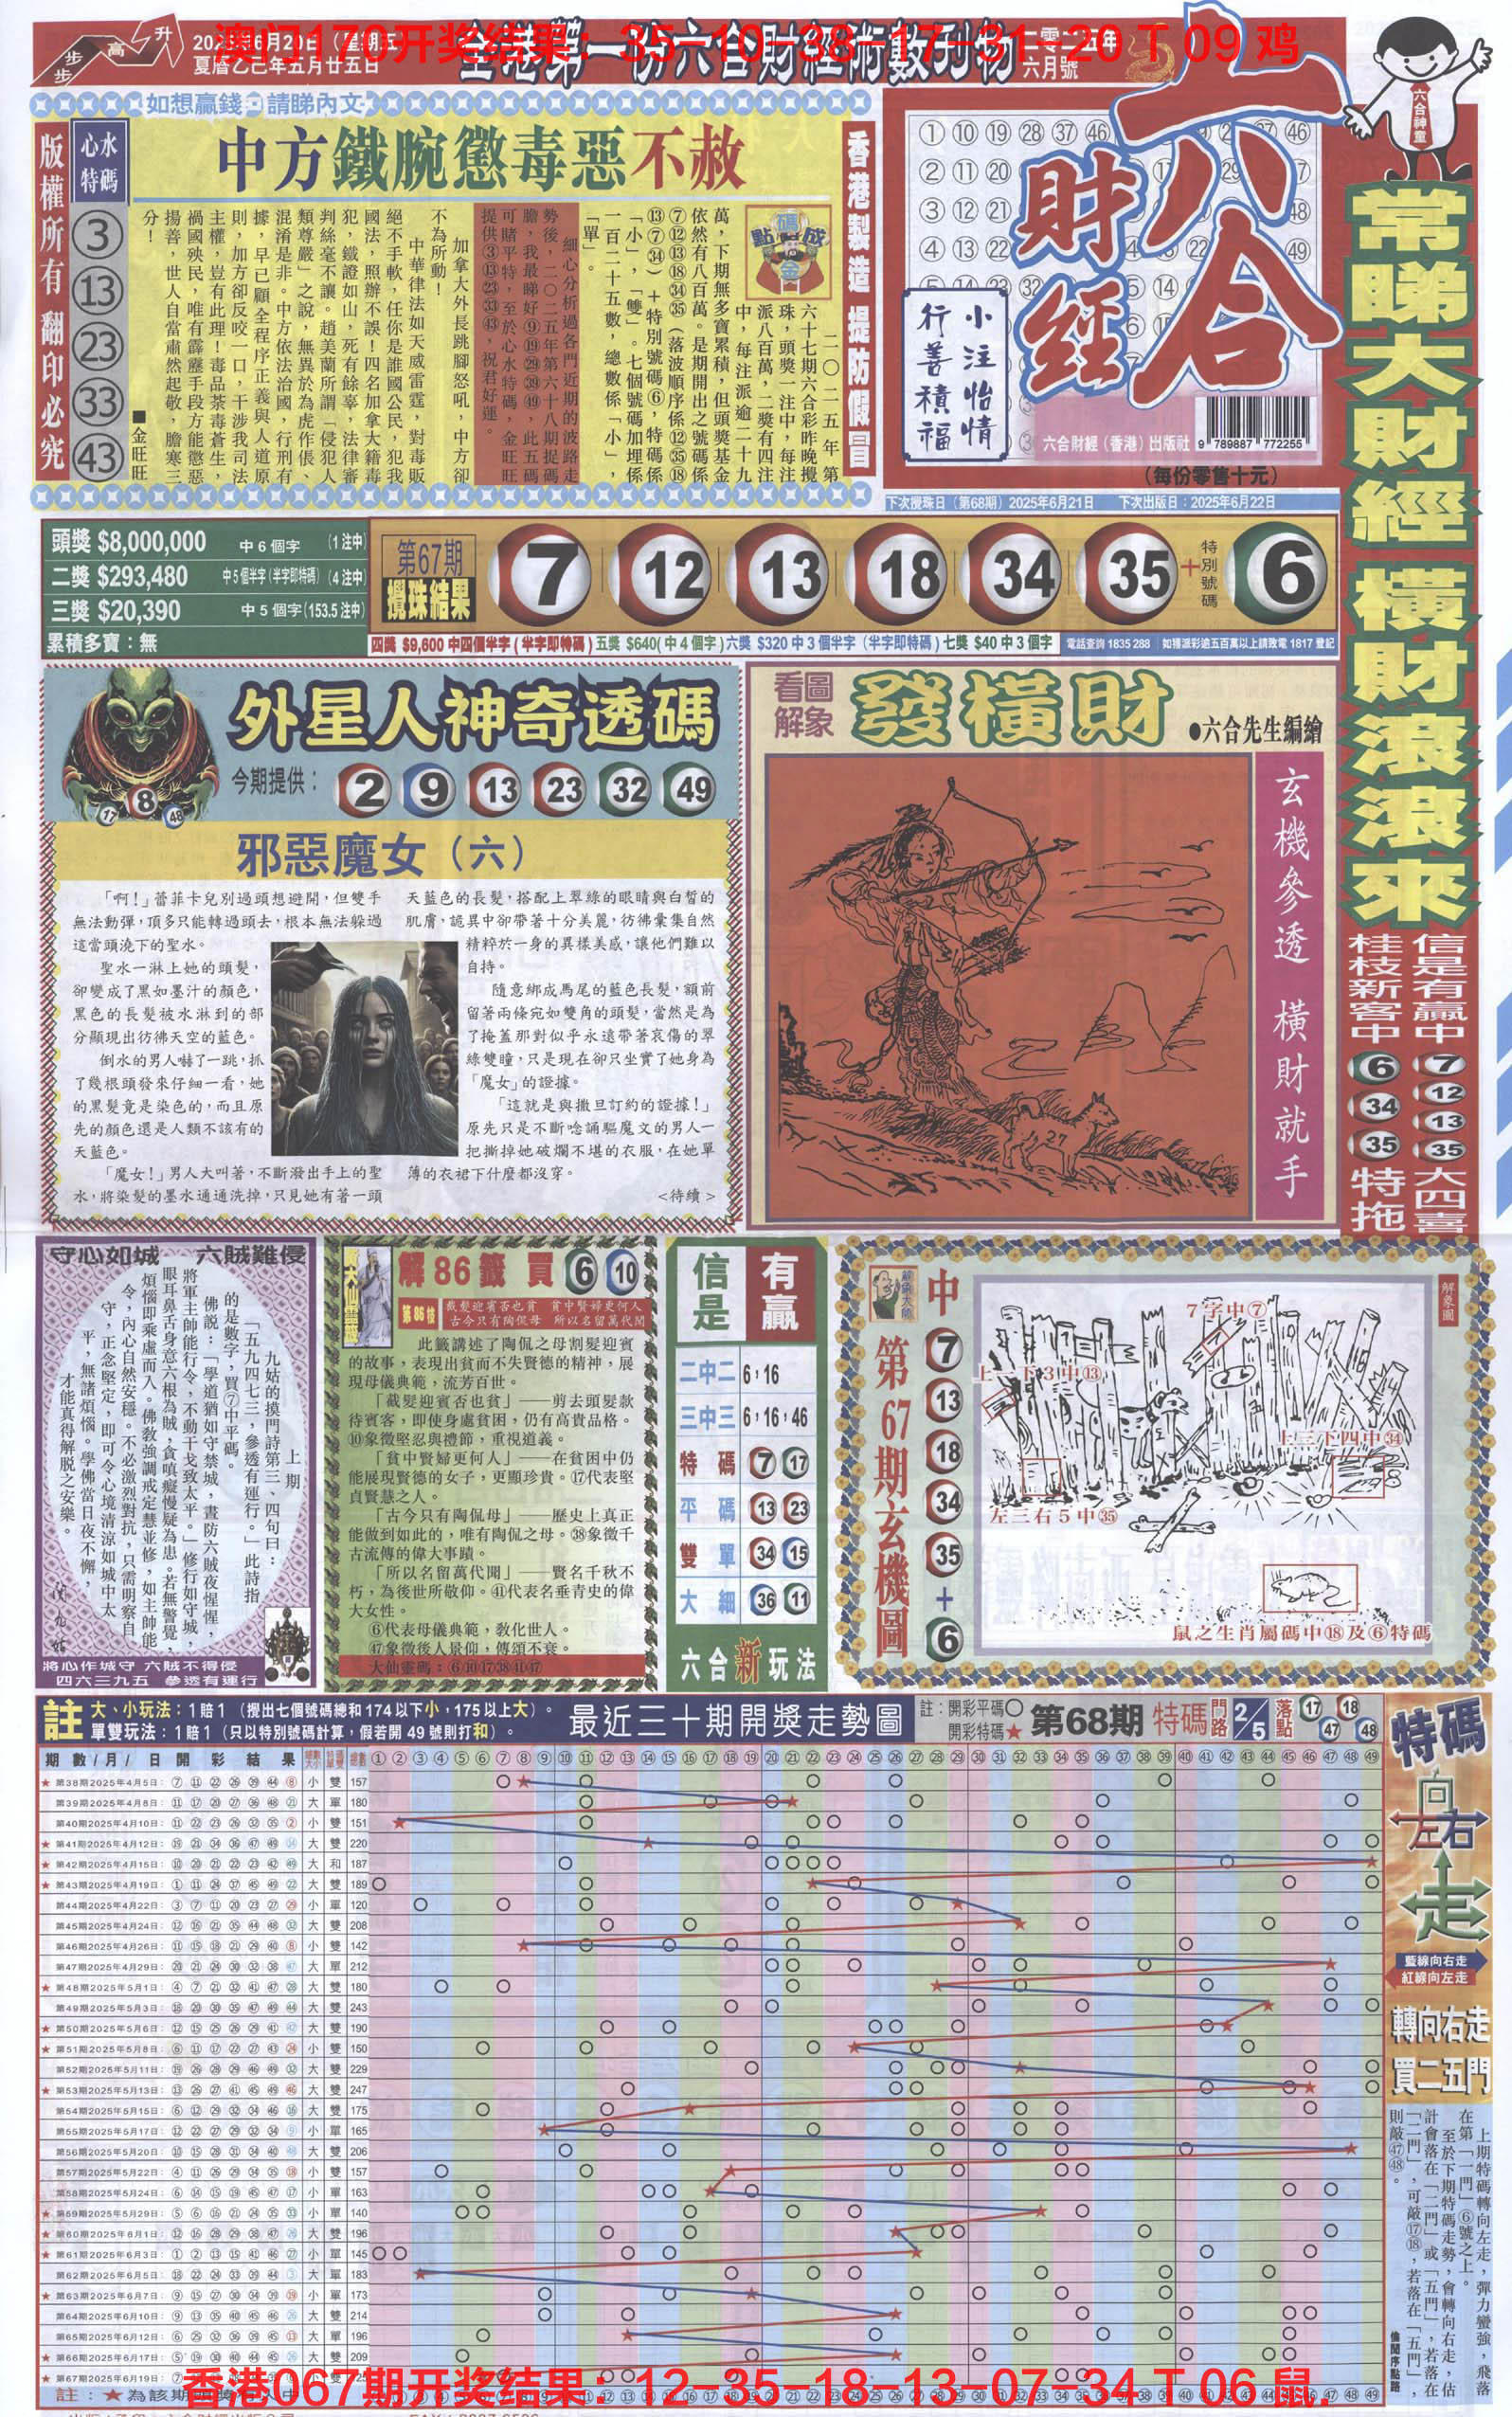 澳门170开奖结果：35-10-38-17-31-20 T 09 鸡
步步高升
2025年6月20日（星期五
夏曆乙巳年五月廿五日
全港第一份六合財經術數刊物
二零二五年
六月號
如想贏錢 請睇內文
版權所有 翻印必究
心水特碼
3
13
23
33
43
中方鐵腕懲毒惡不赦
香港製造 提防假冒
六合財經
六合神童
小注怡情
行善積福
六合財經（香港）出版社
9 789887 772255
（每份零售十元）
下次攪珠日（第68期）2025年6月21日 下次出版日：2025年6月22日
常睇大財經 橫財滾滾來
信是有贏中
桂枝新客中
7 12 13 35 大四喜
6 34 35 特拖
二〇二五年第
六十七期六合彩昨晚攪
珠，頭獎一注中，每注
派八百萬，二獎有四注
中，每注派逾二十九
萬，下期無多寶累積，但頭獎基金
依然有八百萬。是期開出之號碼係
⑦⑫⑬⑱㉞㉟（落波順序係⑫㉟⑱
⑬⑦㉞）＋特別號碼⑥，特碼係
「小」、「雙」。七個號碼加埋係
一百二十五數，總數係「小」，
「單」。
細心分析過各門近期的波路走
勢後，二〇二五年第六十八期捉碼
膽，我最睇好⑨⑲㉙㊴㊾，此五碼
可賭平特，至於心水特碼，金旺旺
提供③⑬㉓㉝㊸，祝君好運。
加拿大外長跳腳怒吼，中方卻
不為所動！
中華律法如天威雷霆，對毒販
絕不手軟，任你是誰國公民，犯我
國法，照辦不誤！四名加拿大籍毒
犯，鐵證如山，死有餘辜，法律審
判絲毫不讓。趙美蘭所謂「侵犯人
類尊嚴」之說，無異於為虎作倀、
混淆是非。中方依法治國，行刑有
據，早已顧全程序正義與人道原
則，加方卻反咬一口，干涉我司法
主權，豈有此理！毒品荼毒蒼生，
禍國殃民，唯有霹靂手段方能懲惡
揚善，世人自當肅然起敬，膽寒三
分！
■金旺旺
頭獎 $8,000,000 中6個字 （1注中）
二獎 $293,480 中5個半字（半字即特碼）（4注中）
三獎 $20,390 中5個字（153.5注中）
累積多寶：無
第67期
攪珠結果
7 12 13 18 34 35 + 特別號碼 6
四獎 $9,600 中四個半字（半字即特碼）五獎 $640（中4個字）六獎 $320 中3個半字（半字即特碼）七獎 $40 中3個字
電話查詢 1835 288 如獲派彩逾五百萬以上請致電 1817 登記
外星人神奇透碼
今期提供：2 9 13 23 32 49
17 8 48
邪惡魔女（六）
「啊！」蕾菲卡兒別過頭想避開，但雙手
無法動彈，頂多只能轉過頭去，根本無法躲過
這當頭澆下的聖水。
聖水一淋上她的頭髮，
卻變成了黑如墨汁的顏色，
黑色的長髮被水淋到的部
分顯現出彷彿天空的藍色。
倒水的男人嚇了一跳，抓
了幾根頭發來仔細一看，她
的黑髮竟是染色的，而且原
先的顏色還是人類不該有的
天藍色。
「魔女！」男人大叫著，不斷潑出手上的聖
水，將染髮的墨水通通洗掉，只見她有著一頭
天藍色的長髮，搭配上翠綠的眼睛與白皙的
肌膚，詭異中卻帶著十分美麗，彷彿彙集自然
精粹於一身的異樣美感，讓他們難以
自持。
隨意綁成馬尾的藍色長髮，額前
留著兩條宛如雙角的頭髮，當然是為
了掩蓋那對似乎永遠帶著哀傷的翠
綠雙瞳，只是現在卻只坐實了她身為
「魔女」的證據。
「這就是與撒旦訂約的證據！」
原先只是不斷唸誦驅魔文的男人一
把撕掉她破爛不堪的衣服，在她單
薄的衣裙下什麼都沒穿。
<待續>
看圖解象
發橫財
●六合先生編繪
玄機參透 橫財就手
27
守心如城 六賊難侵
上期
九姑的摸門詩第三、四句曰：
「五九四七三，參透有運行。」此詩指
的是數字，買⑦中平碼。
佛説：「學道猶如守禁城，晝防六賊夜惺惺，
將軍主帥能行令，不動干戈致太平。」修行如守城，
眼耳鼻舌身意六根為賊，貪嗔癡慢疑為患。若無警覺，
煩惱即乘虛而入。佛教強調戒定慧並修，如主帥能
令，內心自然安穩。不必激烈對抗，只需明察自
守，正念堅定，即可令心境清涼如城中太
平，無諸煩惱。學佛當日夜不懈，
才能真得解脫之安樂。
將心作城守 六賊不得侵
四六三九五 參透有運行
大仙靈籤
解86籤 買 6 10
第86枝
截髮迎賓否也貧 貧中賢婦更何人
古今只有陶侃母 所以名留萬代聞
此籤講述了陶侃之母割髮迎賓
的故事，表現出貧而不失賢德的精神，展
現母儀典範，流芳百世。
「截髮迎賓否也貧」——剪去頭髮款
待賓客，即使身處貧困，仍有高貴品格。
⑩象徵堅忍與禮節，重視道義。
「貧中賢婦更何人」——在貧困中仍
能展現賢德的女子，更顯珍貴。⑰代表堅
貞賢慧之人。
「古今只有陶侃母」——歷史上真正
能做到如此的，唯有陶侃之母。㊳象徵千
古流傳的偉大事蹟。
「所以名留萬代聞」——賢名千秋不
朽，為後世所敬仰。㊶代表名垂青史的偉
大女性。
⑥代表母儀典範，教化世人。
㊼象徵後人景仰，傳頌不衰。
大仙靈碼：⑥⑩⑰㊳㊶㊼
信是有贏
二中二 6，16
三中三 6，16，46
特碼 7 17
平碼 13 23
雙單 34 15
大細 36 11
六合新玩法
中 7 13 18 34 35 + 6
第67期玄機圖
解象圖
7字中⑦
上一下3中⑬
上三下四中㉞
左三右5中㉟
鼠之生肖屬碼中⑱及⑥特碼
註 大、小玩法：1賠1（攪出七個號碼總和174以下小，175以上大）。
單雙玩法：1賠1（只以特別號碼計算，假若開49號則打和）。
最近三十期開獎走勢圖
註：開彩平碼○
開彩特碼★
第68期 特碼 門路 2/5 落點 17 18 47 48
期數/月/日開彩結果
★第38期2025年4月5日：⑦⑪㉒㉖㊴㊹⑧ 小 雙 157
第39期2025年4月8日：⑪⑰⑳㉗㊱㊽㉑ 大 單 180
第40期2025年4月10日：⑪㉒㉓㉖㉜㉟② 小 雙 151
★第41期2025年4月12日：⑲㉑㉞㊱㊼㊾⑭ 大 雙 220
★第42期2025年4月15日：⑩⑳㉑㉒㉓㊷㊾ 大 和 187
★第43期2025年4月19日：①⑪㉔㊲㊺㊾㉒ 大 雙 189
第44期2025年4月22日：③⑦⑪⑳㉓㉗㉙ 小 單 120
第45期2025年4月24日：⑫⑯㉑㉟㊹㊽㉜ 大 雙 208
★第46期2025年4月26日：⑪⑮⑱㉑㉙㊵⑧ 小 雙 142
第47期2025年4月29日：⑳㉑㉔㉚㉜㊳㊼ 大 單 212
★第48期2025年5月1日：④⑦㉑㉜㊶㊼㉘ 大 雙 180
第49期2025年5月3日：⑱⑳㉚㉟㊼㊾㊹ 大 雙 243
★第50期2025年5月6日：⑫⑮㉕㉖㉙㊶㊷ 大 雙 190
★第51期2025年5月8日：⑥⑪⑰㉒㉗㊸㉔ 小 雙 150
第52期2025年5月11日：⑲㉖㉘㉙㊻㊾㉜ 大 雙 229
★第53期2025年5月13日：⑬㉖㉗㊶㊺㊾㊻ 大 雙 247
第54期2025年5月15日：⑥⑫㉙㉜㉞㊻⑯ 大 雙 175
第55期2025年5月17日：⑫㉒㉗㉙㉜㉞⑨ 小 單 165
第56期2025年5月20日：⑩⑮㉘㉛㉞㊵㊽ 大 雙 206
★第57期2025年5月22日：④⑪㉖㉙㉞㉟⑱ 小 雙 157
★第58期2025年5月24日：⑥⑭⑮⑲㊺㊼⑰ 小 單 163
★第59期2025年5月29日：⑤⑥⑯㉑㉔㉟㉝ 小 單 140
★第60期2025年6月1日：⑫⑯㉘㉙㊳㊼㉖ 大 雙 196
★第61期2025年6月3日：①②⑬⑮㊶㊻㉗ 小 單 145
第62期2025年6月5日：⑱㉒㉔㉝㊴㊹③ 大 單 183
★第63期2025年6月7日：⑨⑮㉗㉚㉞㊴⑲ 小 單 173
第64期2025年6月10日：⑨⑬㉟㊵㊺㊻㉖ 大 雙 214
第65期2025年6月12日：⑥㉕㉜㊱㊴㊺⑬ 大 單 196
★第66期2025年6月17日：⑤⑲㉚㊵㊹㊺㉖ 大 雙 209
★第67期2025年6月19日：⑦
註：★為該期
香港067期开奖结果：12-35-18-13-07-34 T 06 鼠.
特碼向左右走
藍線向右走
紅線向左走
轉向右走
買二五門
上期特碼轉向左走，彈力蠻強，飛落
在第「一門」⑥號之上。
至於下期特碼走勢，會轉向右走，估
計會落在「二門」或「五門」，若落在
「二門」，可敲⑰⑱，若落在「五門」，
則敲㊼㊽。